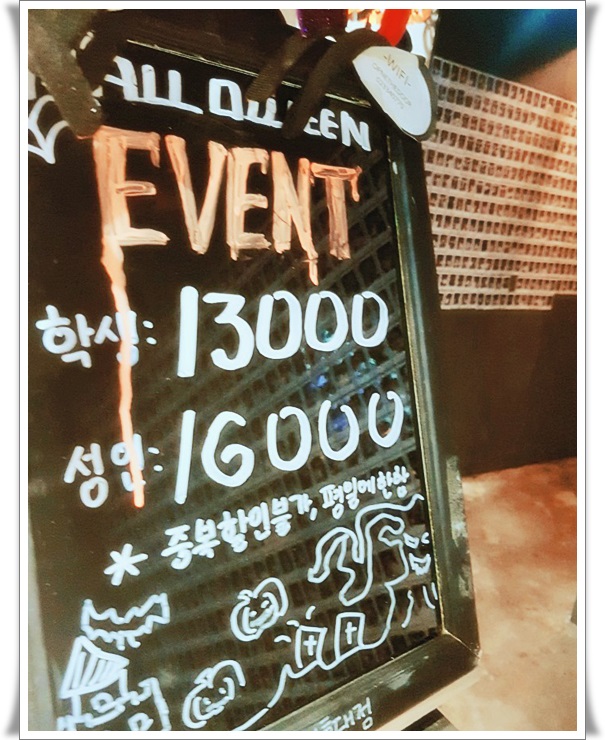 -WIFI-
HALLOWEEN
EVENT
학생: 13000
성인: 16000
* 중복할인불가, 평일에한함